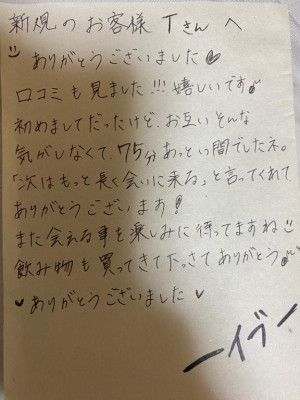 新規のお客様 Tさんへ
ありがとうございました
口コミも見ました!!!嬉しいです
初めましてだったけど、お互いそんな
気がしなくて、75分あっとい間でしたネ。
「次はもっと長く会いに来る」と言ってくれて
ありがとうございます!
また会える事を楽しみに待ってますね
飲み物も買ってきて下さってありがとう
ありがとうございました
ーイブー